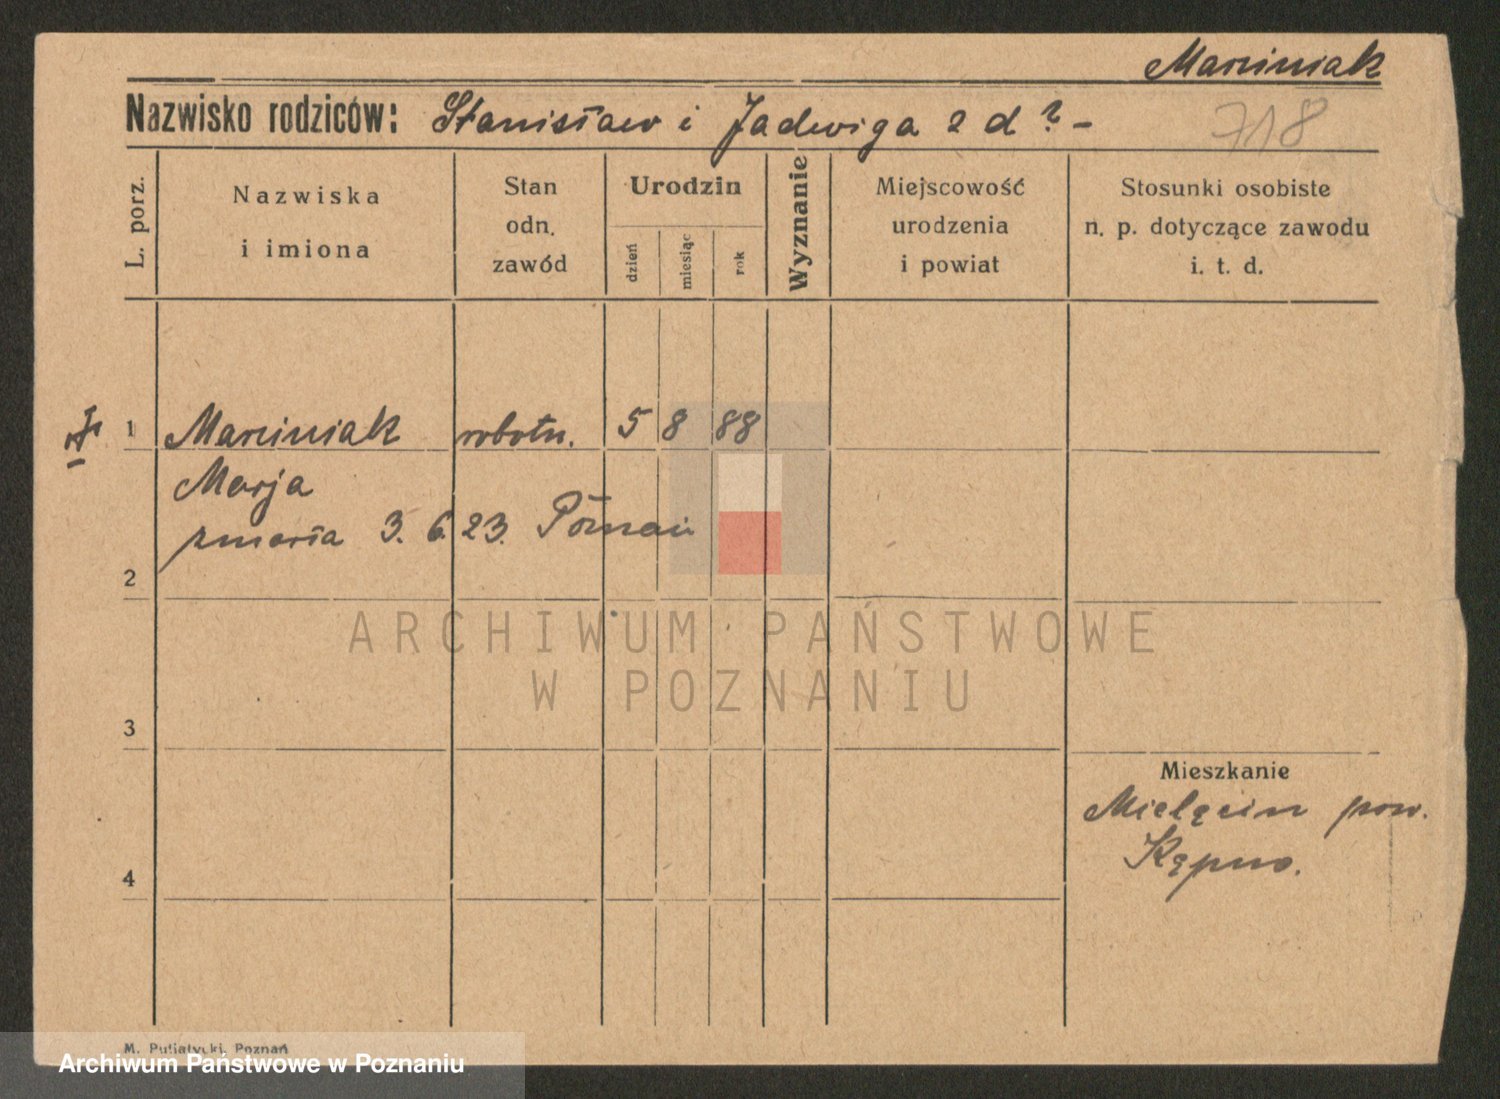 Marciniak
Nazwisko rodziców: Stanisław i Jadwiga z d ? -
718
L. porz.
Nazwiska
i imiona
Stan
odn.
zawód
Urodzin
dzień
miesiąc
rok
Wyznanie
Miejscowość
urodzenia
i powiat
Stosunki osobiste
n. p. dotyczące zawodu
i. t. d.
1 Marciniak robotn. 5 8 88
Marja
zmarła 3. 6. 23. Poznań
2
ARCHIWUM PAŃSTWOWE
W POZNANIU
3
Mieszkanie
Mielęcin pow.
Kępno.
4
M. Putiatycki, Poznań
Archiwum Państwowe w Poznaniu